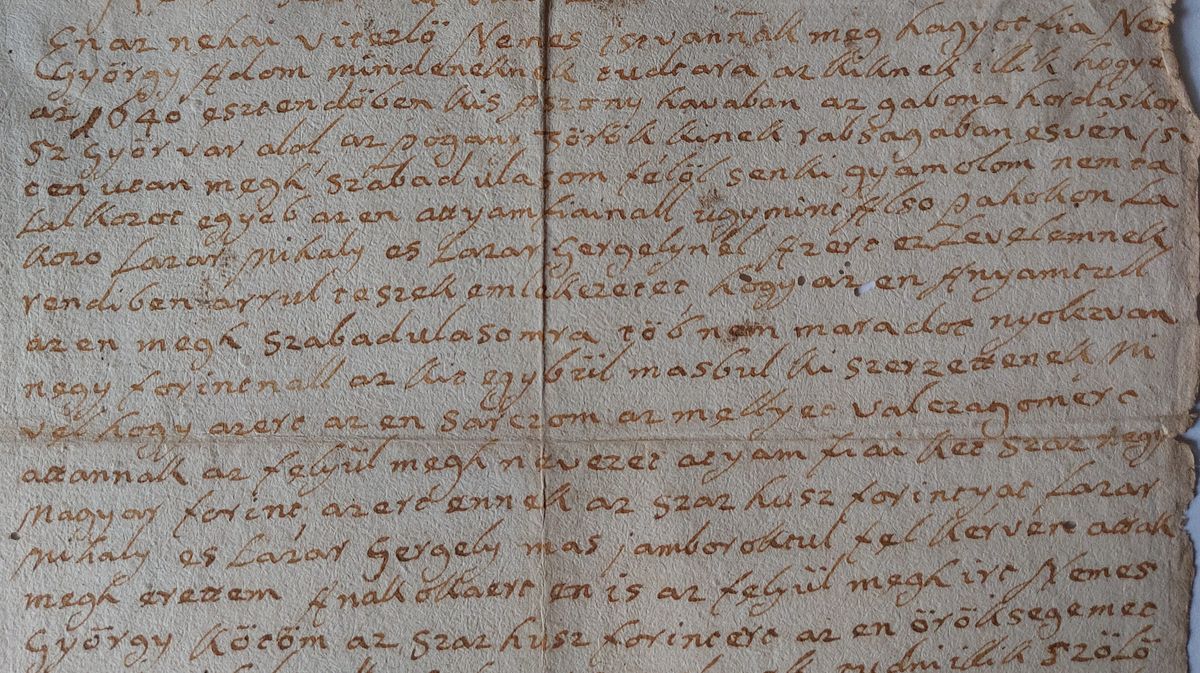 En az nehai vitezlö Nemes istvannak meg hagyot fia Ne
György Adom mindeneknek tudtara az kiknek illik hogy
az 1640 esztendöben kis aszony havaban az gabona hordaskor
Györ var alol az pogany Török kinek rabsagaban esvén is
ten utan megh szabadulasom felöl senki gyamolom nem ta
lalkozot egyeb az en attyamfiainall ugymint Also pahokon la
kozo Lazar Mihaly es Lazar Gergelynel Azert ez Levelemnek
rendiben arrul teszek emlekezetet hogy az en Anyamtull
az en megh szabadulasomra töb nem maradot nyolczvan
negy forintnall az kit egybül masbul ki szerzettenek Mi
vel hogy azert az en sarczom az mellyet valczagomert
attannak az felyül megh nevezet atyam fiai ket szaz negy
Magyar forint azert ennek az szaz husz forintyat Lazar
Mihaly es Lazar Gergely mas jamboroktul fel kerven attak
megh erettem Annak okaert en is az felyül megh irt Nemes
György kötöm az szaz husz forintert az en öröksegemet
szölö